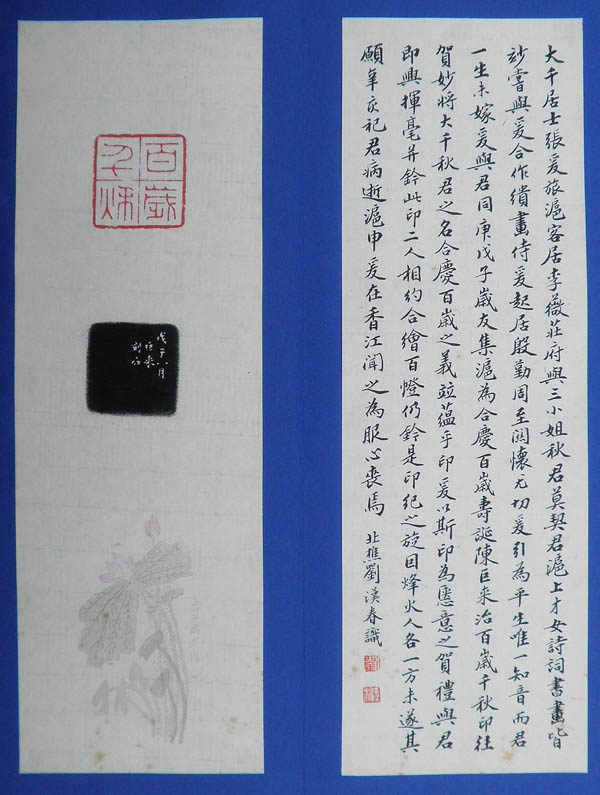 大千居士張爰旅滬客居李薇莊府與三小姐秋君莫契君滬上才女詩詞書畫皆
玅嘗與爰合作繢畫侍爰起居殷勤周至關懷尤切爰引為平生唯一知音而君
一生未嫁爰與君同庚戊子歲友集滬為合慶百歲壽誕陳巨來治百歲千秋印往
賀妙將大千秋君之名合慶百歲之義竝蘊乎印爰以斯印為愜意之賀禮與君
即興揮毫并鈐此印二人相約合繪百幀仍鈐是印紀之旋因烽火人各一方未遂其
願辛亥祀君病逝滬申爰在香江聞之為服心喪焉
北樵劉漢春識
百歲
千秋
戊子八月
巨來